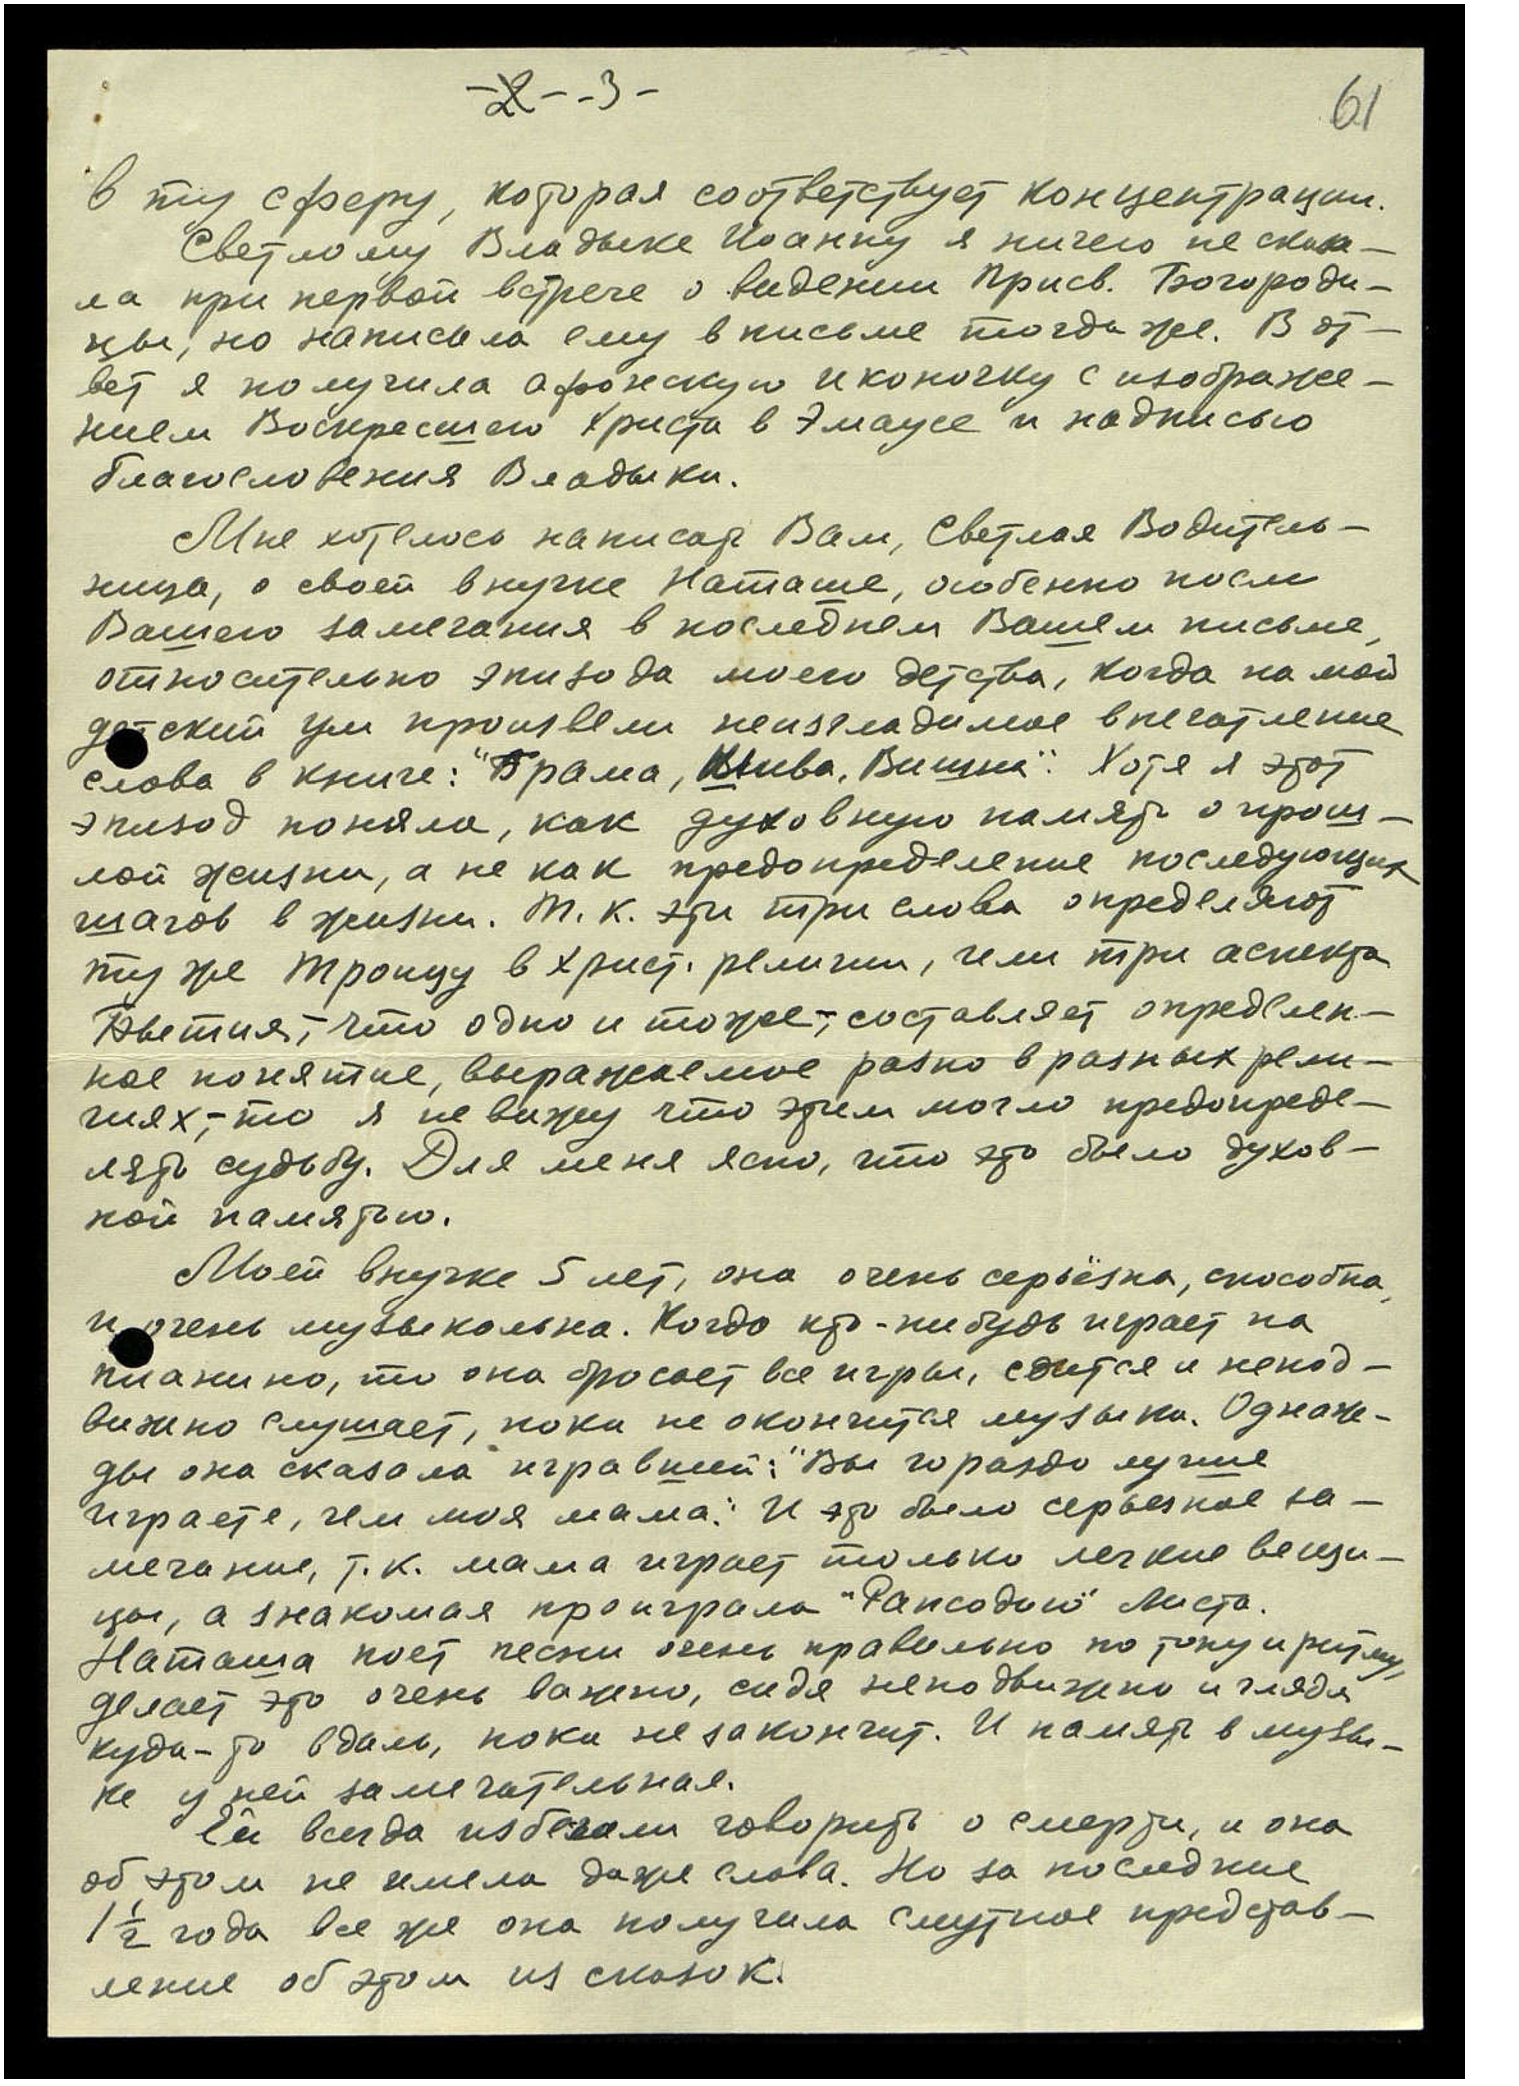 -2- -3-
61
в ту сферу, которая соответствует концентрации.
Светлому Владыке Иоанну я ничего не сказа-
ла при первой встрече о видении Присв. Богороди-
цы, но написала ему в письме тогда же. В от-
вет я получила афонскую иконочку с изображе-
нием Воскресшего Христа в Эмаусе и надписью
благословения Владыки.
Мне хотелось написать Вам, Светлая Водитель-
ница, о своей внучке Наташе, особенно после
Вашего замечания в последнем Вашем письме,
относительно эпизода моего детства, когда на мой
детский ум произвели неизгладимое впечатление
слова в книге: "Брама, Шива, Вишну". Хотя я этот
эпизод поняла, как духовную память о прош-
лой жизни, а не как предопределение последующих
шагов в жизни. Т.к. эти три слова определяют
ту же Троицу в христ. религии, чем три аспекта
что одно и тоже,- составляет определен-
ное понятие, выражаемое разно в разных рели-
гиях,- то я не вижу что этим могло предопреде-
лять судьбу. Для меня ясно, что это было духов-
ной памятью.
Моей внучке 5 лет, она очень серьёзна, способна,
и очень музыкальна. Когда кто-нибудь играет на
пианино, то она бросает все игры, садится и непод-
вижно слушает, пока не окончится музыка. Однаж-
ды она сказала игравшей: "Вы гораздо лучше
играете, чем моя мама". И это было серьезное за-
мечание, т.к. мама играет только легкие вещи-
цы, а знакомая проиграла "Рапсодию" Листа.
Наташа поет песни очень правильно по тону и ритму,
делает это очень важно, сидя неподвижно и глядя
куда-то вдаль, пока не закончит. И память в музы-
ке у ней замечательная.
Ей всегда избегали говорить о смерти, и она
об этом не имела даже слова. Но за последние
1½ года все же она получила смутное представ-
ление об этом из сказок.